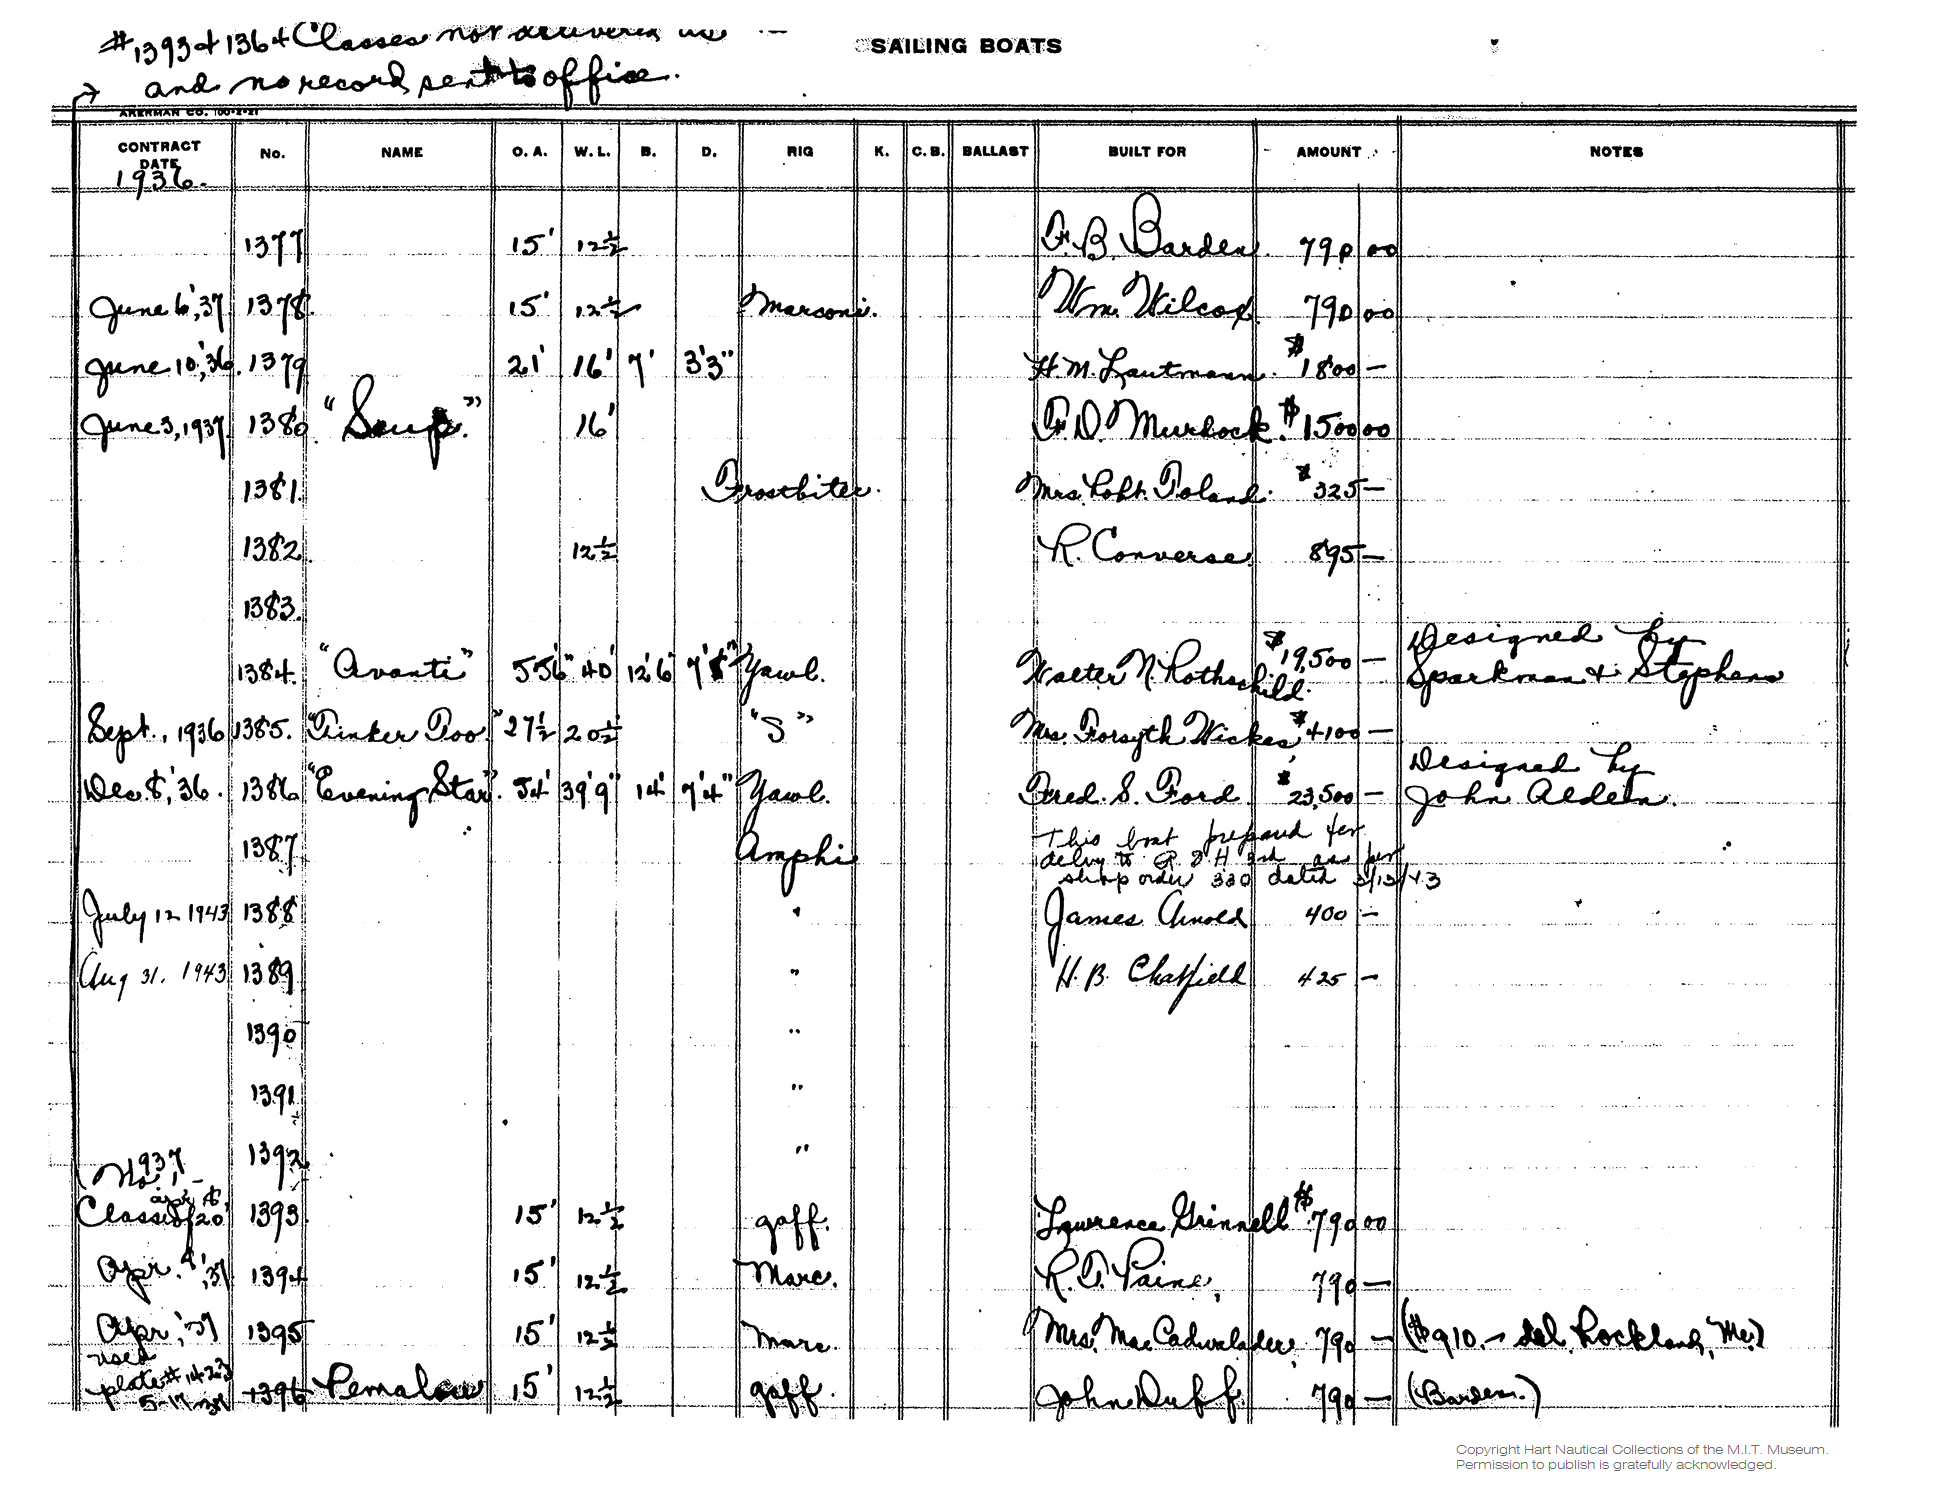 #1393 & 1364 Classes not delivered
and no record sent to office.
SAILING BOATS
AKERMAN CO. 100-2-21
CONTRACT DATE No. NAME O. A. W. L. B. D. RIG K. C. B. BALLAST BUILT FOR AMOUNT NOTES
1936.
1377 15' 12½ F. B. Barden. 790 00
June 6, '37 1378. 15' 12½ Marconi. Wm. Wilcox. 790 00
June 10, '36. 1379 21' 16' 7' 3'3" H. M. Lautmann. $1800 —
June 3, 1937. 1380 "Soup." 16' F. D. Murdock. $1500 00
1381. Frostbiter. Mrs. Robt. Toland. $325 —
1382. 12½ R. Converse. 895 —
1383.
1384. "Avanti" 55'6" 40' 12'6" Yawl. Walter N. Rothschild. $19,500 — Designed by
Sparkman & Stephens
Sept., 1936 1385. "Tinker Too." 27½ 20½ "S" Mrs. Forsyth Wickes $4100 —
Dec. 8, '36. 1386 "Evening Star". 54' 39'9" 14' 7'4" Yawl. Fred. S. Ford. $23,500 — Designed by
John Alden.
1387 Amphi This boat prepared for
delvy to as per
shop order 330 dated 3/13/43
July 12 1943 1388 " James Arnold 400 —
Aug 31. 1943 1389 " H. B. Chatfield 425 —
1390 "
1391 "
1392 "
1937
No. 1 —
Apr 8,
Class of 20' 1393. 15' 12½ gaff. Lawrence Grinnell $790 00
Apr. 8, '37 1394 15' 12½ Marc. R. T. Paine, 790 —
Apr, '37 1395 15' 12½ Marc. Mrs. Mac Cadwalader, 790 — ($910. — del. Rockland, Me.)
used
plate # 1423
5-17-37 1396 Pemalow 15' 12½ gaff. John Duff 790 — (Barden.)
Copyright Hart Nautical Collections of the M.I.T. Museum.
Permission to publish is gratefully acknowledged.